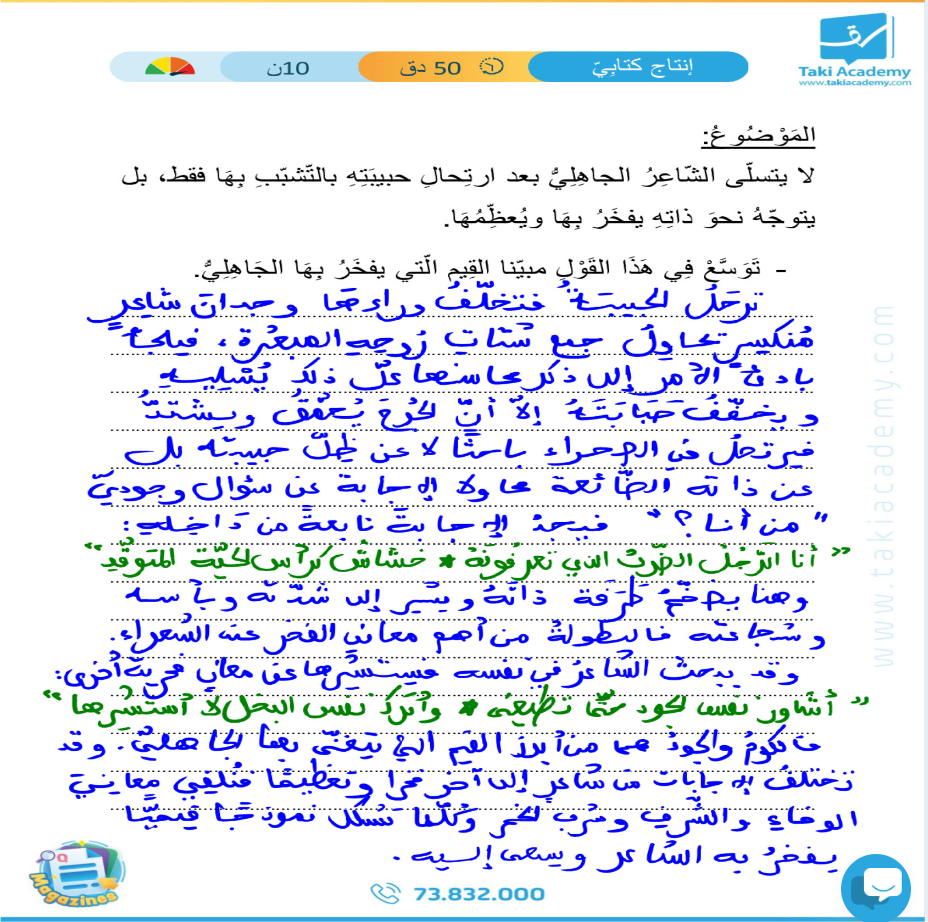 Taki Academy
www.takiacademy.com
إنتاج كتابيّ
50 دق
10ن
المَوْضُوعُ:
لا يتسلّى الشّاعِرُ الجاهِلِيُّ بعد ارتِحالِ حبيبَتِهِ بالتّشبّبِ بِهَا فقط، بل
يتوجّهُ نحوَ ذاتِهِ يفخَرُ بِهَا ويُعظِّمُهَا.
- تَوَسَّعْ فِي هَذَا القَوْلِ مبيّنا القِيم الّتي يفخَرُ بِهَا الجَاهِلِيُّ.
ترحَلُ الحبيبَةُ فتخلّفُ وراءها وجدانَ شاعرٍ
مُنكسِرٍ تحاولُ جمعَ شتاتِ رُوحِهِ المبعثرة، فيلجأ
بادئَ الأمر إلى ذكر محاسنها علّ ذلك يُسْليه
ويخفّفُ صَبَابَتَهُ إلّا أنّ الجُرحَ يتعمّقُ ويشتدُّ
فيرتحلُ في الصحراء باحثًا لا عن ظِلّ حبيبته بل
عن ذاته الضّائعة محاولا الإجابة عن سؤال وجوديّ
"من أنا؟" فيجدُ الإجابةَ نابعةً من دَاخِلِهِ:
"أنا الرّجُلُ الضّرْبُ الذي تعرفونَهُ * خشاش كرأس الحيّة المتوقّدِ"
وهنا يضخّمُ طَرَفة ذاتَهُ ويشير إلى شدّته وبأسه
وشجاعته فالبطولةُ من أهم معاني الفخر عند الشعراء.
وقد يبحث الشاعرُ في نفسه فيستشيرها عن معاني فخريّة أخرى:
"أشاور نفسَ الجود حتّى تطيعني * وأترك نفس البخل لا أستشيرها"
فالكرمُ والجودُ هما من أبرز القيم التي يتغنّى بها الجاهليّ. وقد
تختلفُ الإجابات من شاعرٍ إلى آخر فخرا وتعظيمًا فنُلفي معانيَ
الوفاءِ والشّرفِ وشرب الخمر وكلّها تشكّل نموذجًا قيميًّا
يفخرُ به الشاعر ويسعى إليه.
www.takiacademy.com
Magazines
73.832.000